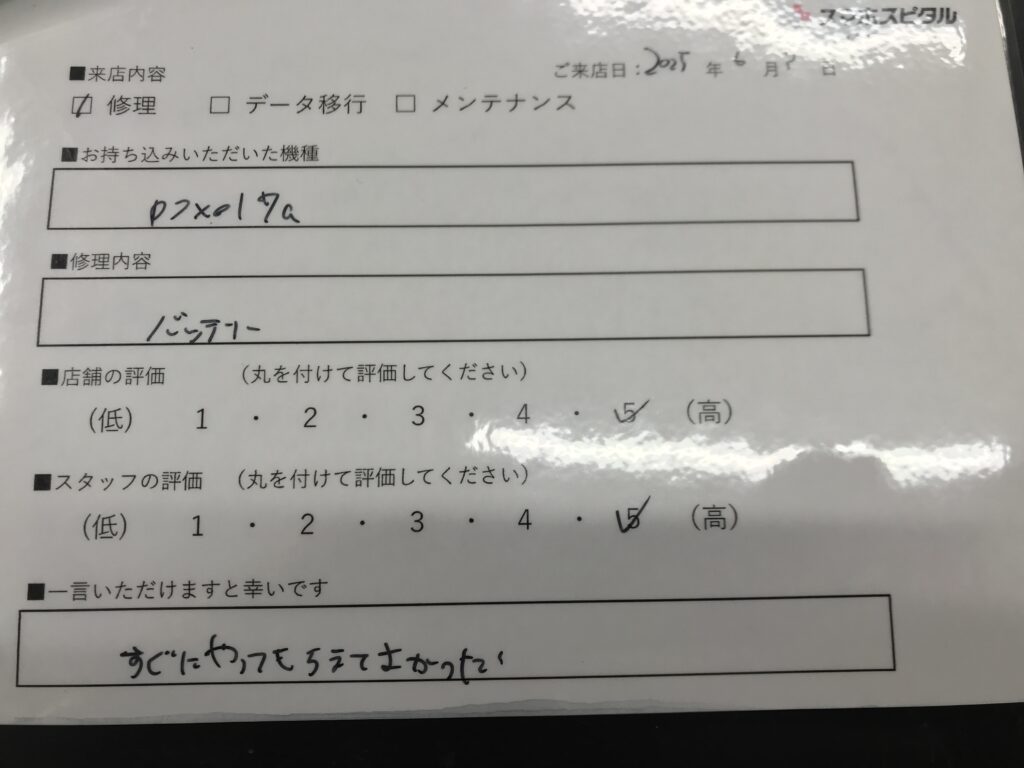 スマホスピタル
■来店内容
ご来店日：2025年6月 日
☑ 修理 □ データ移行 □ メンテナンス
■お持ち込みいただいた機種
pixel 7a
■修理内容
バッテリー
■店舗の評価 （丸を付けて評価してください）
（低） 1 ・ 2 ・ 3 ・ 4 ・ 5 （高）
■スタッフの評価 （丸を付けて評価してください）
（低） 1 ・ 2 ・ 3 ・ 4 ・ 5 （高）
■一言いただけますと幸いです
すぐにやってもらえてよかったです